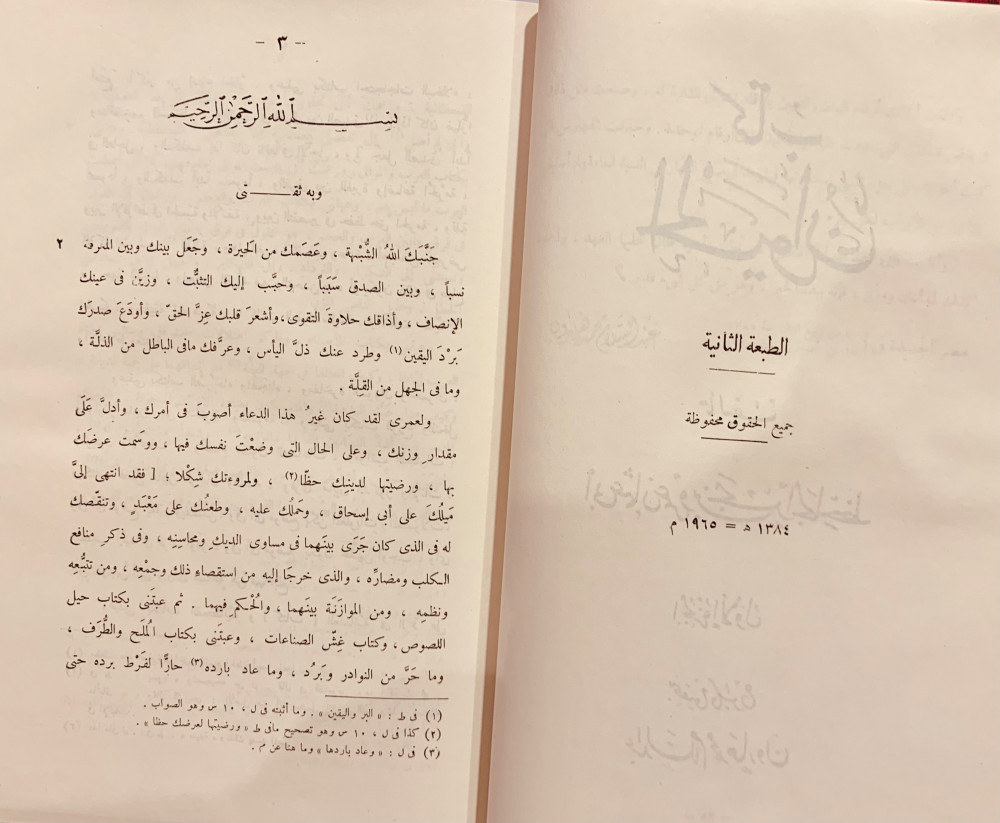 الطبعة الثانية
جميع الحقوق محفوظة
١٣٨٤ ه = ١٩٦٥ م
- ٣ -
بسم الله الرحمن الرحيم
وبه ثقتى
٢
جَنَّبَكَ اللهُ الشُّبْهة ، وعَصَمك من الحَيرة ، وجَعَل بينك وبين المعرفة
نسباً ، وبين الصدق سَبَباً ، وحبَّب إليك التثبُّت ، وزيَّن فى عينك
الإنصاف ، وأذاقك حلاوةَ التقوى، وأشعرَ قلبك عِزَّ الحقّ ، وأودَعَ صدرَك
بَردَ اليقين (١) وطرد عنك ذلَّ اليأس ، وعرَّفك مافى الباطل من الذلَّة ،
وما فى الجهل من القِلَّة .
ولعمرى لقد كان غيرُ هذا الدعاء أصوبَ فى أمرك ، وأدلَّ عَلَى
مقدار وزنك ، وعلى الحال التى وضعْتَ نفسك فيها ، ووسَمت عرضَك
بها ، ورضيتها لدينِك حظّا (٢) ، ولمروءتك شِكْلا ؛ [ فقد انتهى إلىَّ
مَيلُكَ على أبى إسحاق ، وحَملُك عليه ، وطعنُك على مَعْبَدٍ ، وتنقّصك
له فى الذى كان جَرَى بينَهما فى مساوى الديك ومحاسِنِه ، وفى ذكرِ منافع
الكلب ومضارِّه ، والذى خرجَا إليه من استقصاءِ ذلك وجمْعِه ، ومن تتبُّعِه
ونظمِه ، ومن الموازَنَة بينَهما ، والُحْكمِ فيهما . ثم عبتَنى بكتاب حيل
اللصوص، وكتاب غِشّ الصناعات ، وعبتَنى بكتاب الُملَح والطُّرَف ،
وما حَرَّ من النوادر وبَرُد ، وما عاد بارده (٣) حارًّا لفَرْط برده حتى
(١) فى ط : « البر واليقين » . وما أثبته فى ل ، ١٠ س وهو الصواب .
(٢) كذا فى ل ، ١٠ س وهو تصحيح مافى ط « ورضيتها لعرضك حظا » .
(٣) فى ل : « وعاد باردها » وما هنا عن م .